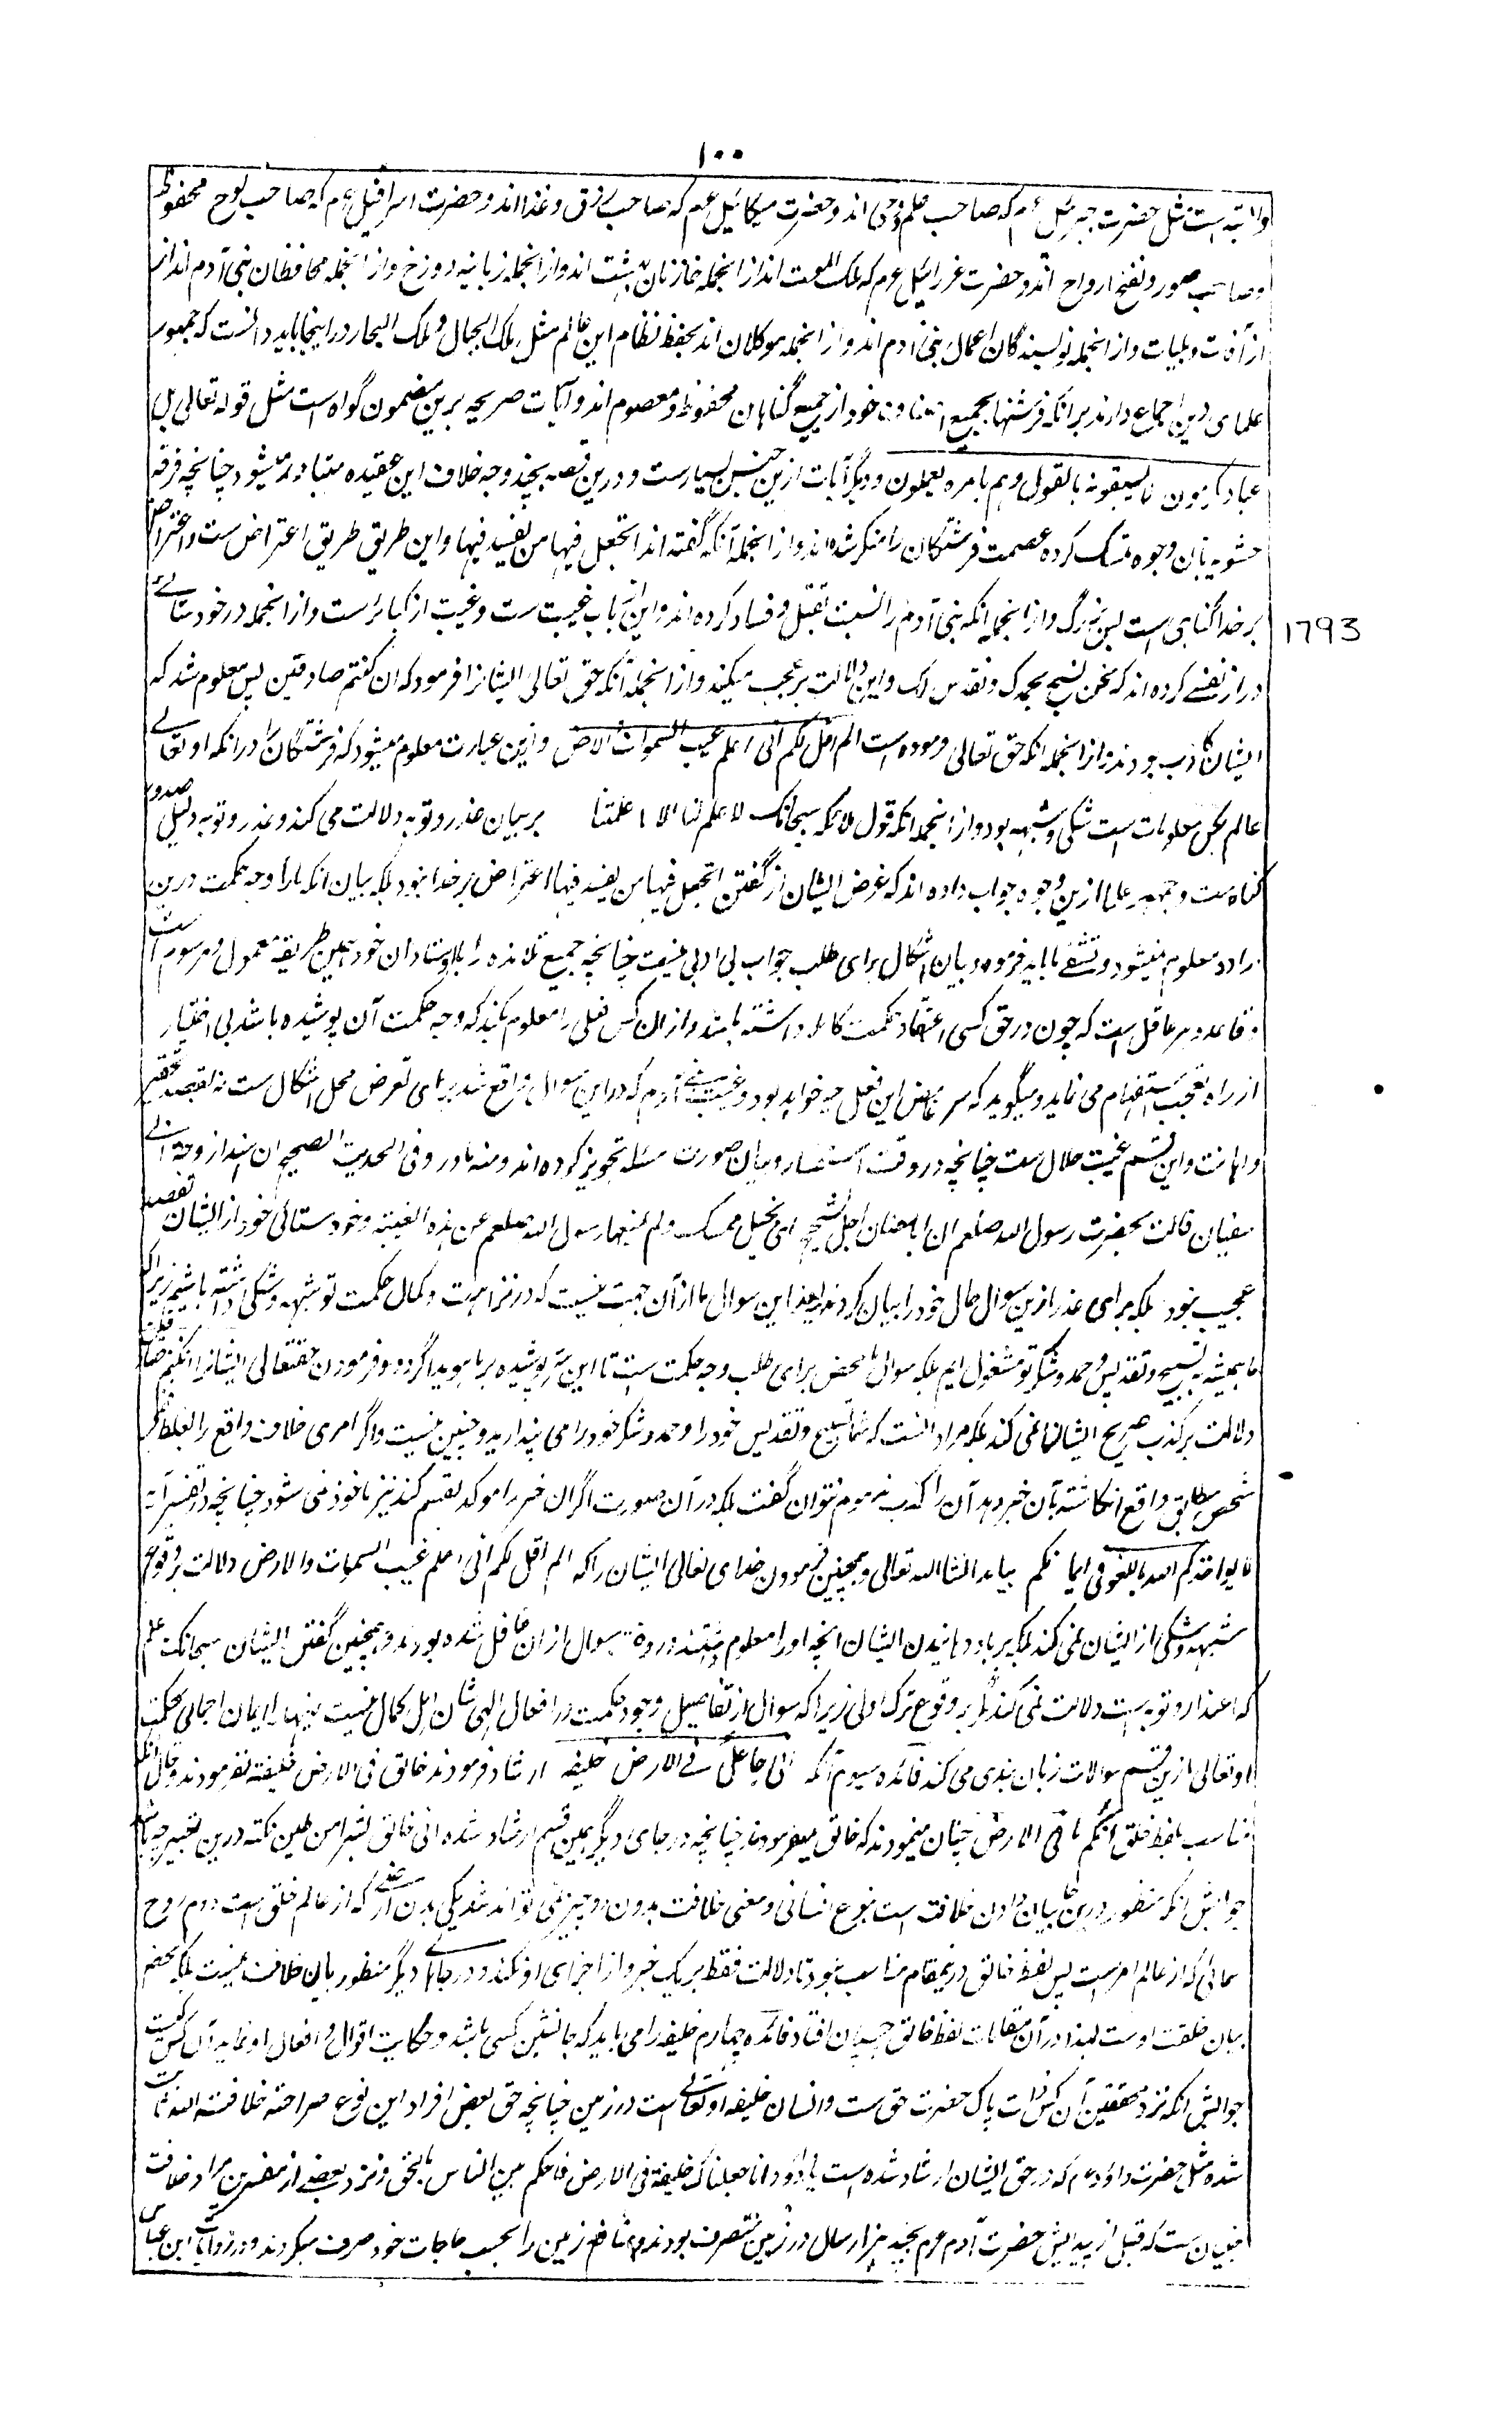 ۱۰۰
ولایته است مثل حضرت جبرئیل عم که صاحب علم و وحی اند و حضرت میکائیل عم که صاحب رزق و غذا اند و حضرت اسرافیل عم که صاحب لوح محفوظ
و صاحب صور و نفخ ارواح اند و حضرت عزرائیل عم که ملک الموت اند از انجمله خازنان بهشت اند و از انجمله زبانیه دوزخ و از انجمله محافظان بنی آدم اند از
از آفات و بلیات و از انجمله نویسندگان اعمال بنی آدم اند و از انجمله موکلان اند بحفظ نظام این عالم مثل ملک الجبال و ملک البحار در اینجا باید دانست که جمهور
علمای دین اجماع دارند برانکه فرشتها بجمیع اصناف خود از جمیع گناهان محفوظ و معصوم اند و آیات صریحه برین مضمون گواه است مثل قوله تعالی بل
عباد مکرمون لا یسبقونه بالقول وهم بامره یعملون و دیگر آیات ازین جنس بسیارست و درین قصه بچند وجه خلاف این عقیده متبادر میشود چنانچه فرقه
حشویه بآن وجوه تمسک کرده عصمت فرشتگان را منکر شده اند و از انجمله آنکه گفته اند اتجعل فیها من یفسد فیها و این طریق طریق اعتراض ست و اعتراض
بر خدا گناهی است بس بزرگ و از انجمله انکه بنی آدم را نسبت بقتل و فساد کرده اند و این از باب غیبت ست و غیبت از کبائرست و از انجمله در خود ستائی
1793
دراز نفسی کرده اند که نحن نسبح بحمدک و نقدس لک و این دلالت بر عجب میکند و از انجمله آنکه حق تعالی ایشانرا فرمود که ان کنتم صادقین پس معلوم شد که
ایشان کاذب بودند و از انجمله انکه حق تعالی فرموده است الم اقل لکم انی اعلم غیب السموات والارض و ازین عبارت معلوم میشود که فرشتگان را درانکه او تعالی
عالم بکل معلومات است شکی و شبهه بود و از انجمله انکه قول ملائکه سبحانک لا علم لنا الا ما علمتنا بر بیان عذر و توبه دلالت می کند و عذر و توبه دلیل صدور
گناه ست و جمهور علما ازین وجوه جواب داده اند که غرض ایشان از گفتن اتجعل فیها من یفسد فیها اعتراض بر خدا نبود بلکه بیان انکه ما را وجه حکمت درین
اراده معلوم نمیشود و تشفی ما باید فرمود و بیان اشکال برای طلب جواب بی ادبی نیست چنانچه جمیع تلامذه را با اوستادان خود همین طریقه معمول و مرسوم است
و قاعده هر عاقل است که چون در حق کسی اعتقاد حکمت کامله داشته باشد و از ان کس فعلی را معلوم بکند که وجه حکمت آن پوشیده باشد بی اختیار
از راه تعجب استفهام می نماید و میگوید که سر این فعل چه خواهد بود و غیبت بنی آدم که دراین سوال واقع شد برای تعرض محل اشکال ست نه بقصد تحقیر
و اهانت و این قسم غیبت حلال ست چنانچه در وقت استفسار و بیان صورت مسئله تجویز کرده اند و منه ما ورد فی الحدیث الصحیح ان هندا زوجة ابی
سفیان قالت بحضرت رسول الله صلعم ان ابا سفیان رجل شحیح ای بخیل ممسک ولم ینهها رسول الله صلعم عن هذه الغیبة و خود ستائی خود از ایشان بقصد
عجب نبود بلکه برای عذر ازین سوال حال خود را بیان کردند یعنی این سوال ما از آن جهت نیست که در نزاهت و کمال حکمت تو شبهه و شکی داشته باشیم زیراکه
ما همیشه به تسبیح و تقدیس و حمد و شکر تو مشغول ایم بلکه سوال ما محض برای طلب وجه حکمت ست تا این سر پوشیده بر ما هویدا گردد و فرمودن حقتعالی ایشانرا ان کنتم صادقین
دلالت بر کذب صریح ایشان نمی کند بلکه مراد انست که شما تسبیح و تقدیس خود را و حمد و شکر خود را می پندارید و چنین نیست و اگر امری خلاف واقع را بغلط
شخص مطابق واقع انگاشته بآن خبر دهد آن را کذب مذموم نتوان گفت بلکه در آن صورت اگر ان خبر را موکد بقسم کند نیز ماخوذ نمی شود چنانچه در تفسیر آیه
لا یواخذکم الله باللغو فی ایمانکم بیاید انشا الله تعالی و همچنین فرمودن خدای تعالی ایشان را که الم اقل لکم انی اعلم غیب السموات والارض دلالت بر وقوع
شبهه و شکی از ایشان نمی کند بلکه بر یاد دهانیدن ایشان انچه او را معلوم میداشتند و در وقت سوال از ان غافل شده بودند و همچنین گفتن ایشان سبحانک لا علم
که اعتذار و توبه است دلالت نمی کند مگر بر وقوع ترک اولی زیراکه سوال از تفاصیل وجود حکمت در افعال الهی شان اهل کمال نیست اینها را ایمان اجمالی بحکمت
او تعالی ازین قسم سوالات زبان بندی می کند فائده سیوم آنکه انی جاعل فی الارض خلیفه ارشاد فرمودند خالق فی الارض خلیفة نفرمودند و حال آنکه
مناسب بلفظ خلق لکم ما فی الارض چنان مینمود که خالق میفرمودند چنانچه در جای دیگر همین قسم ارشاد شده انی خالق بشرا من طین نکته درین تغییر چه باشد
جوابش انکه منظور درین جا بیان دادن خلافت است بنوع انسانی و معنی خلافت بدون دو چیز نمی تواند شد یکی بدن ارضی که از عالم خلق است دوم روح
سمائی که از عالم امر است پس لفظ خالق درینمقام مناسب نبود تا دلالت فقط بر یک جزو از اجزای او نکند و در جاهای دیگر منظور بیان خلافت نیست بلکه محض
بیان خلقت اوست لهذا در آن مقامات لفظ خالق چسپان افتاد فائده چهارم خلیفه را می باید که جانشین کسی باشد و حکایت اقوال و افعال او نماید آن کس کیست
جوابش انکه نزد محققین آن کس ذات پاک حضرت حق ست و انسان خلیفه او تعالی است در زمین چنانچه حق بعض افراد این نوع صراحة خلافت الله ثابت
شده مثل حضرت داؤد عم که در حق ایشان ارشاد شده است یا داؤد انا جعلناک خلیفة فی الارض فاحکم بین الناس بالحق و نزد بعضی از مفسرین مراد خلافت
جنیان ست که قبل از پیدایش حضرت آدم عم بچند هزار سال در زمین متصرف بودند و منافع زمین را بحسب حاجات خود صرف میکردند و در روایات ابن عباس